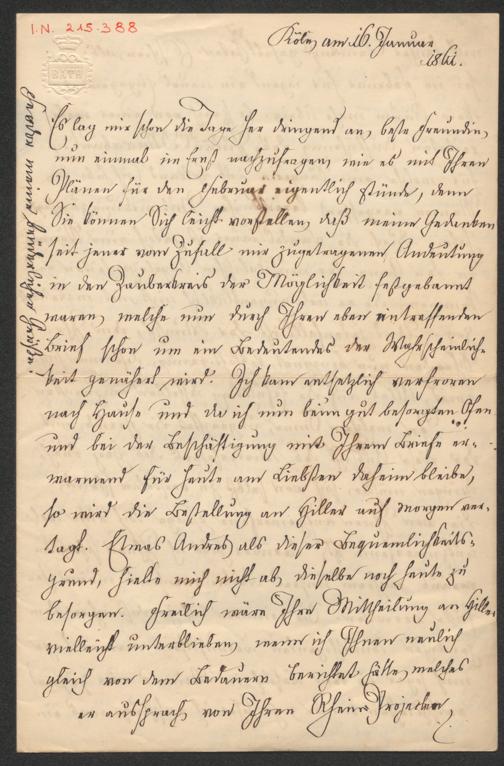 I.N. 215.388
BATH
Köln, am 16. Januar
1861.
Es lag mir schon die Tage her dringend an, beste Freundin,
nun einmal im Ernst nachzufragen, wie es mit Ihren
Plänen für den Februar eigentlich stünde, denn
Sie können Sich leicht vorstellen, daß meine Gedanken
seit jener vom Zufall mir zugetragenen Andeutung
in den Zauberkreis der Möglichkeit festgebannt
waren, welche nun durch Ihren eben eintreffenden
Brief schon um ein Bedeutendes der Wahrscheinlich-
keit genähert wird. Ich kam entsetzlich verfroren
nach Hause und da ich nun beim gut besorgten Ofen
und bei der Beschäftigung mit Ihrem Briefe er-
warmend für heute am Liebsten daheim bleibe,
so wird die Bestellung an Hiller auf morgen ver-
tagt. Etwas Andres als dieser Bequemlichkeits-
grund, hielte mich nicht ab, dieselbe noch heute zu
besorgen. Freilich wäre Ihre Mittheilung an Hiller
vielleicht unterblieben, wenn ich Ihnen neulich
gleich von dem Bedauern berichtet hätte, welches
er aussprach, von Ihren Projecten,
meine herzlichen Grüße!